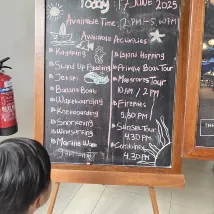 Today 17 JUNE 2025
Available Time : 2PM-5.30PM
Available Activities
Kayaking
Stand Up Paddling
Jetski
Banana Boat
Wakeboarding
Kneeboarding
Snorkeling
Windsurfing
Marine Walk
Island Hopping
Private Boat Tour
Mangroves Tour
10AM / 2PM
Fireflies
6.30PM
Sunset Tour
4.30PM
4.30PM
THE